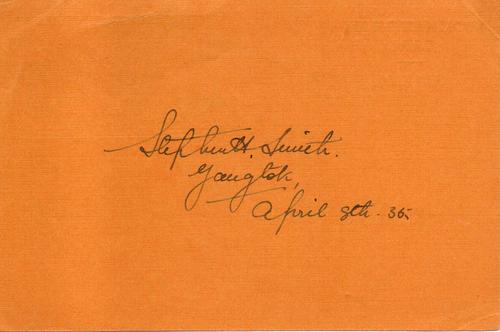 Stephen H. Smith.
Gangtok,
April 8th. 35